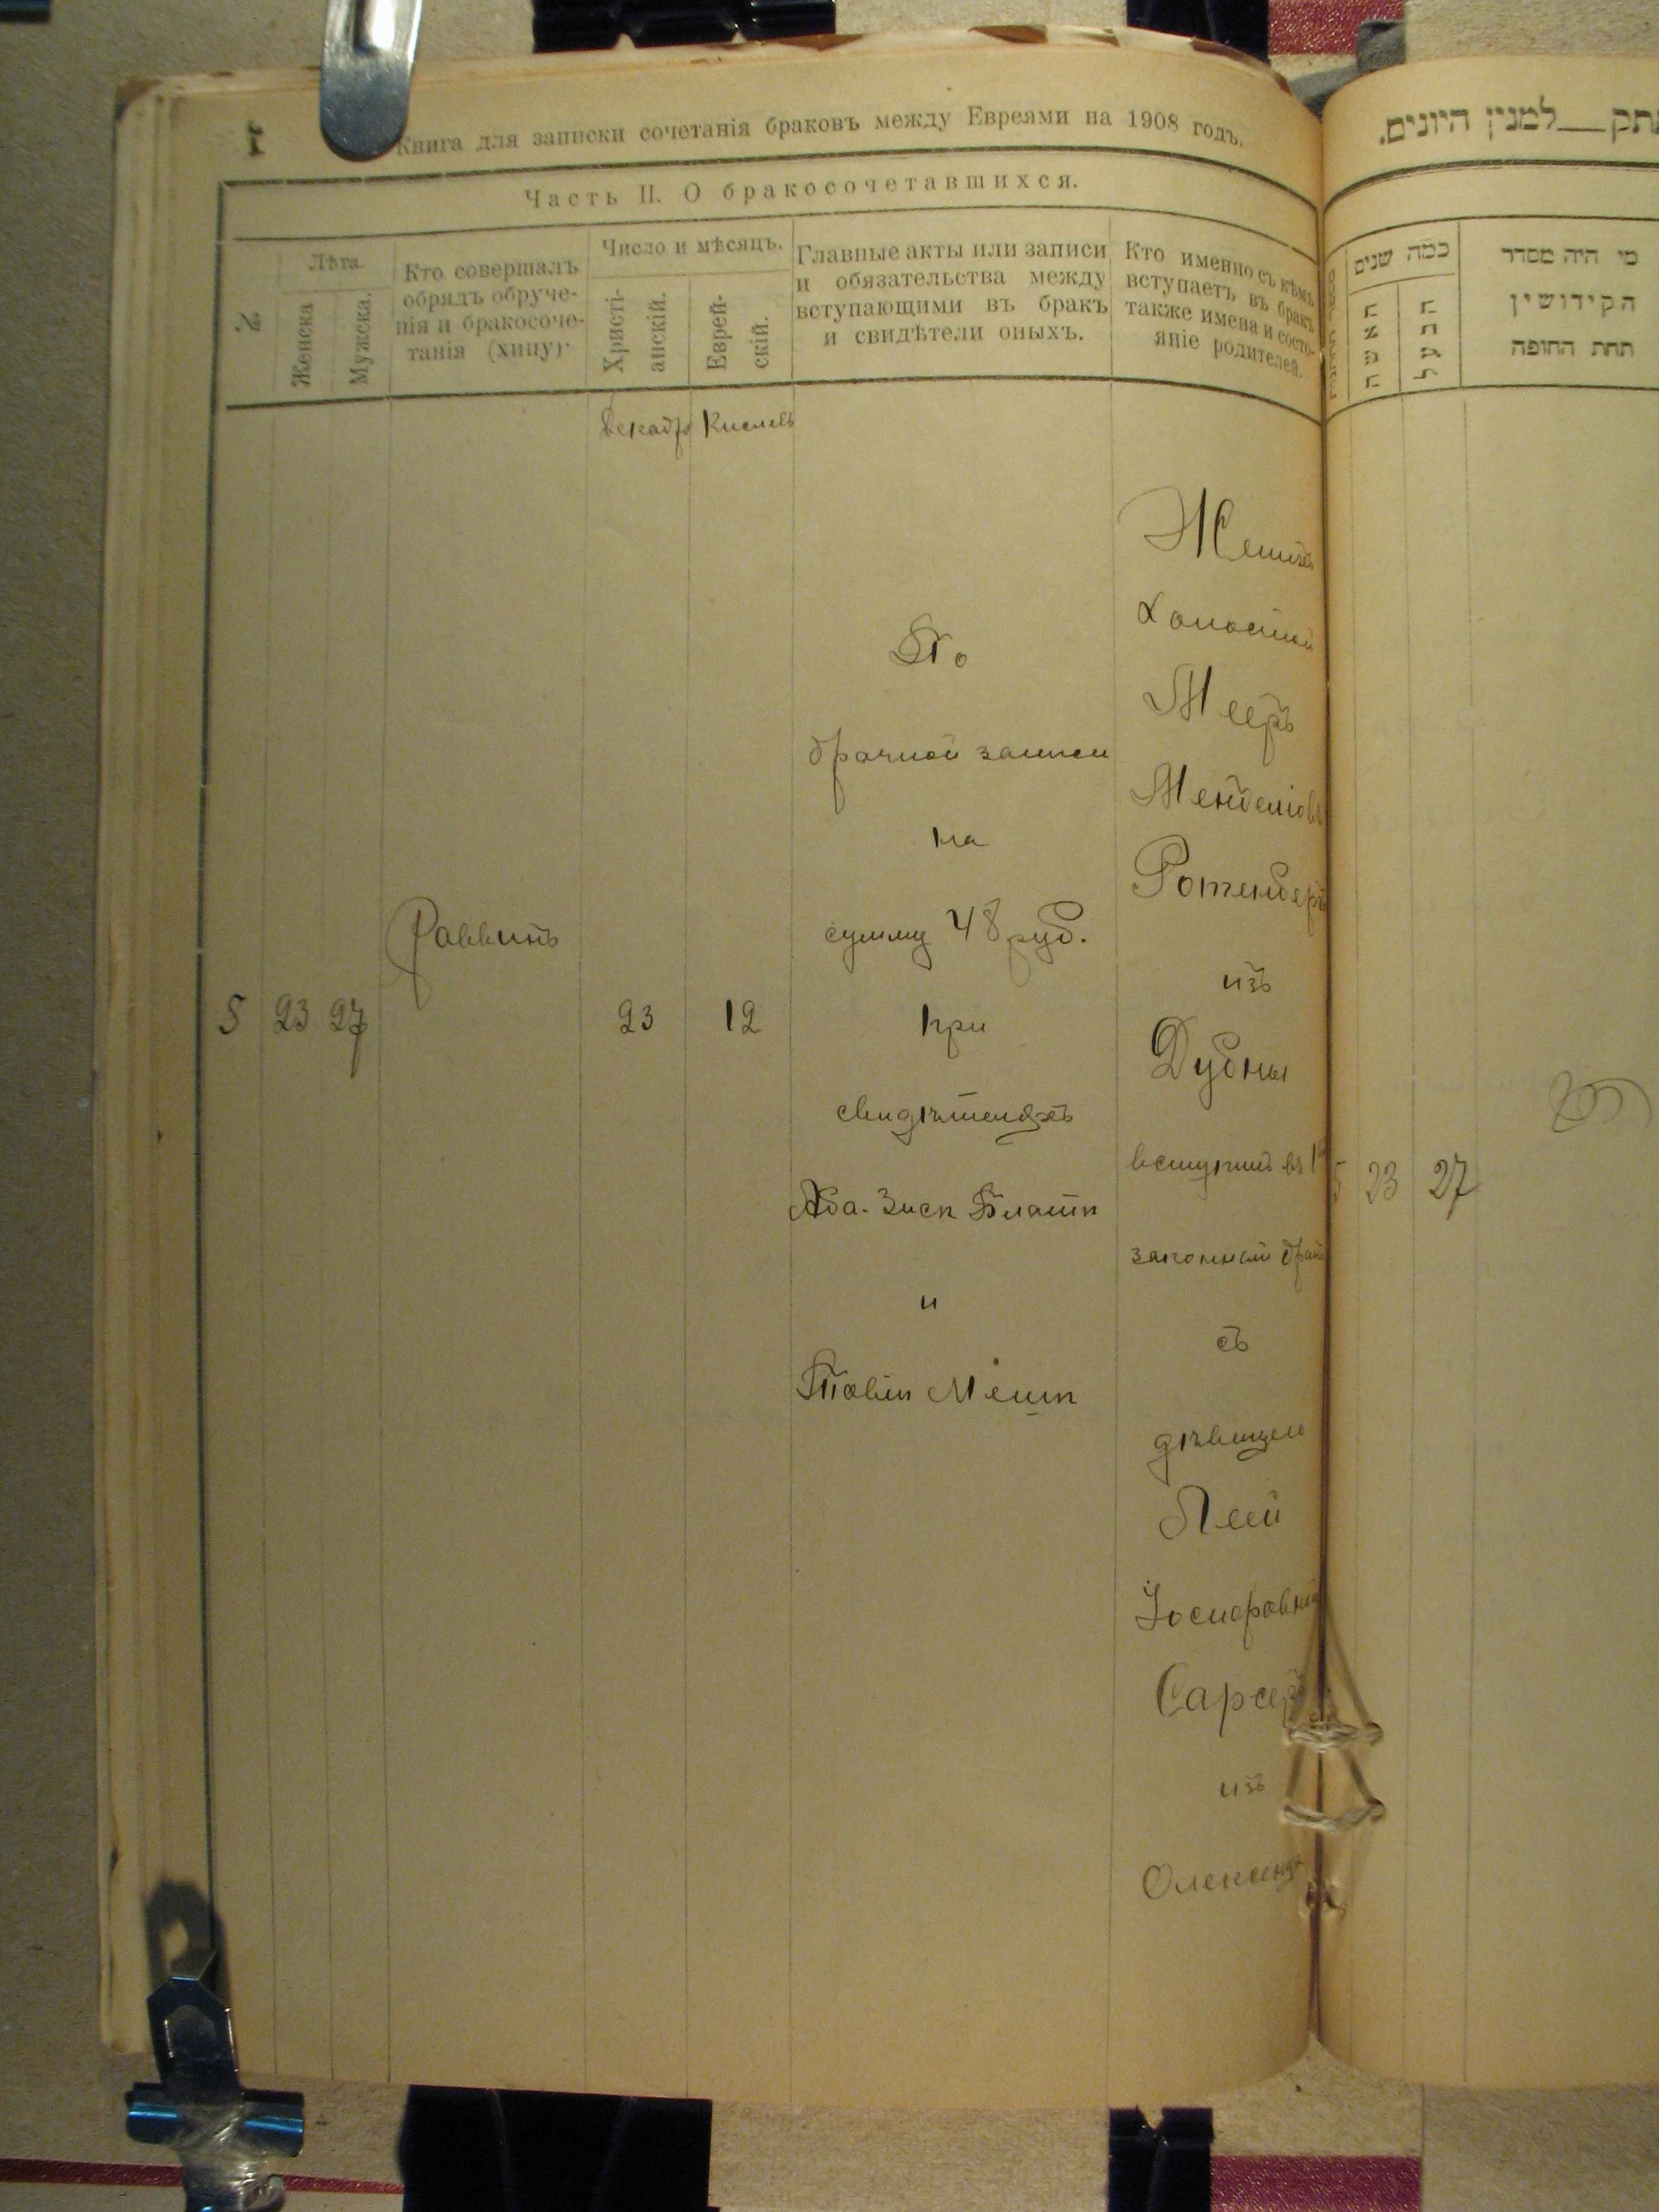 Книга для записки сочетанія браковъ между Евреями на 1908 годъ.
Часть II. О бракосочетавшихся.
№
Лѣта.
Женска
Мужска.
Кто совершалъ
обрядъ обруче-
нія и бракосоче-
танія (хипу).
Число и мѣсяцъ.
Христі-
анскій.
Еврей-
скій.
Главные акты или записи
и обязательства между
вступающими въ бракъ
и свидѣтели оныхъ.
Кто именно съ кѣмъ
вступаетъ въ бракъ
также имена и состо-
яніе родителей.
Декабр
Кислевъ
5
23
27
Раввинъ
23
12
По
брачной записи
на
сумму 48 руб.
при
свидѣтеляхъ
Аба-Зиск
и
Женихъ
холостой
Мееръ
Менделіовъ
Ротенберъ
изъ
Дубны
вступил въ 1й
законный брак
съ
дѣвицею
Леей
Іосифовной
Сарсер
изъ
למנין היונים.
כמה שנים
האשה
הבעל
מי היה מסדר
הקידושין
תחת החופה
5
23
27